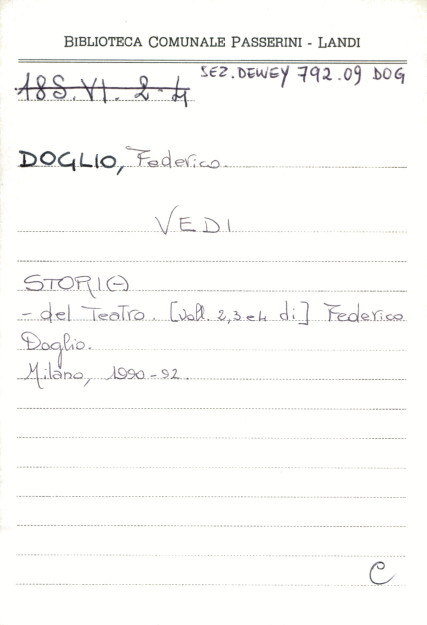 BIBLIOTECA COMUNALE PASSERINI - LANDI
SEZ. DEWEY 792.09 DOG
18S.VI. 2-4
DOGLIO, Federico.
VEDI
STORI(-)
- del Teatro. [Voll. 2,3 e 4 di] Federico
Doglio.
Milano, 1990-92.
C